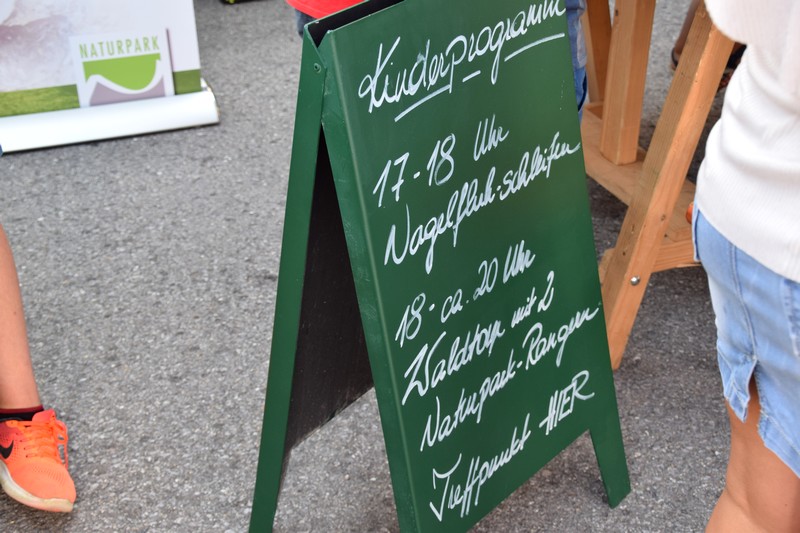 NATURPARK
Kinderprogramm
17-18 Uhr
Nagelfluh-schleifen
18-ca. 20 Uhr
Waldtour mit 2
Naturpark-Rangern
Treffpunkt HIER